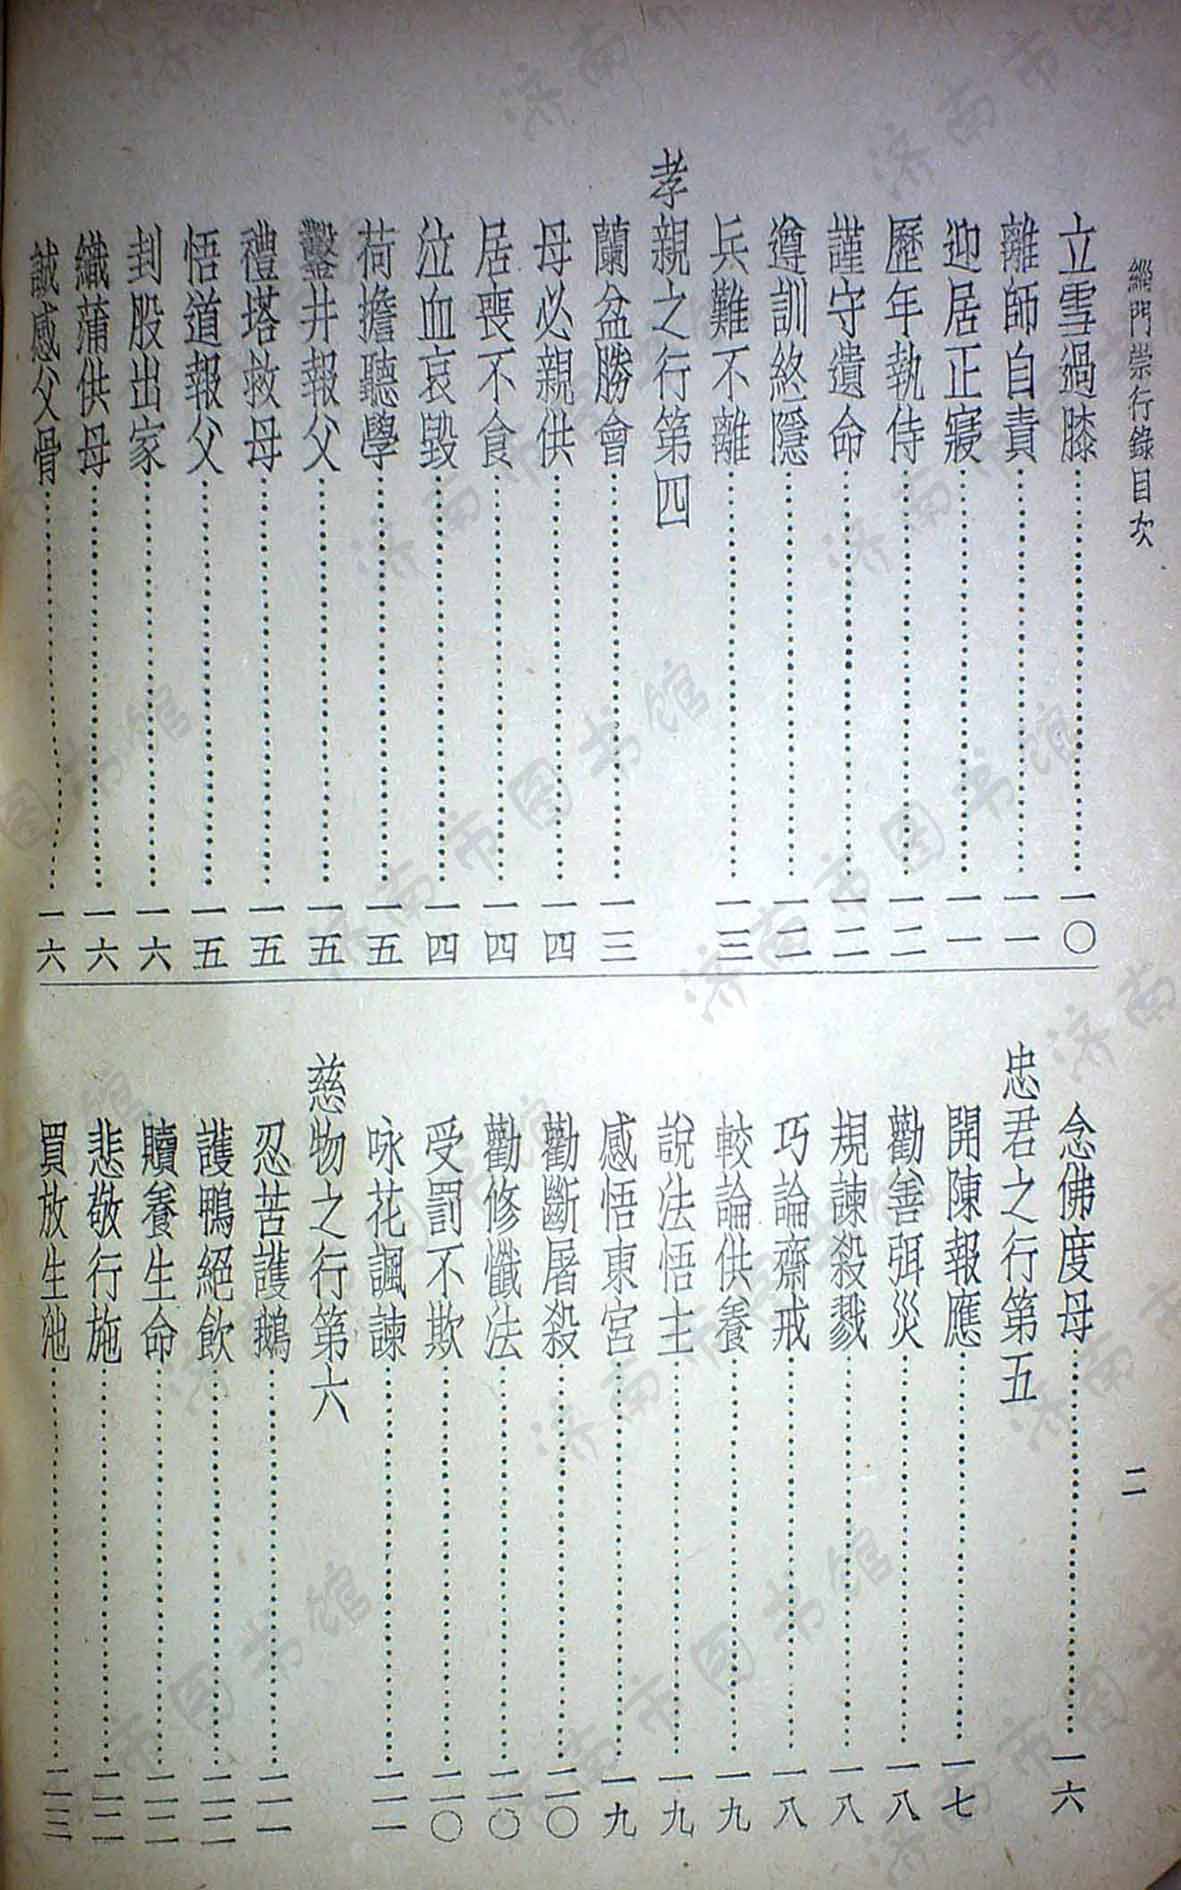 緇門崇行錄目次
二
立雪過膝……一〇
離師自責……一一
迎居正寢……一一
歷年執侍……一二
謹守遺命……一二
遵訓終隱……一二
兵難不離……一三
孝親之行第四
蘭盆勝會……一三
母必親供……一四
居喪不食……一四
泣血哀毀……一四
荷擔聽學……一五
鑿井報父……一五
禮塔救母……一五
悟道報父……一五
刲股出家……一六
織蒲供母……一六
誠感父骨……一六
念佛度母……一六
忠君之行第五
開陳報應……一七
勸善弭災……一八
規諫殺戮……一八
巧論齋戒……一八
較論供養……一九
說法悟主……一九
感悟東宮……一九
勸斷屠殺……二〇
勸修懺法……二〇
受罰不欺……二〇
咏花諷諫……二一
慈物之行第六
忍苦護鵝……二一
護鴨絕飲……二二
贖養生命……二二
悲敬行施……二二
買放生池……二三
济南市图书馆